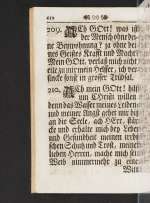 410
209. Ach GOtt! was ist
der Mensch ohne dei-
ne Beywohnung? ja ohne dei-
nes Geistes Krafft und Macht?
Mein GOtt, verlaß mich nicht
eile zu mir mein Helffer, ich ver-
sincke sonst in grosser Trübsal.
210. Ach mein GOtt! hilff
um Christi willen
denn das Wasser meines Lebens
und meiner Angst gehet mir biß
an die Seele, ach HErr, stär-
cke und erhalte mich bey Leben
und Gesundheit meinen irrdi-
schen Schutz und Trost, meinen
lieben Herren, mache mich zur
Weib nimmermehr zu einer
Wit-